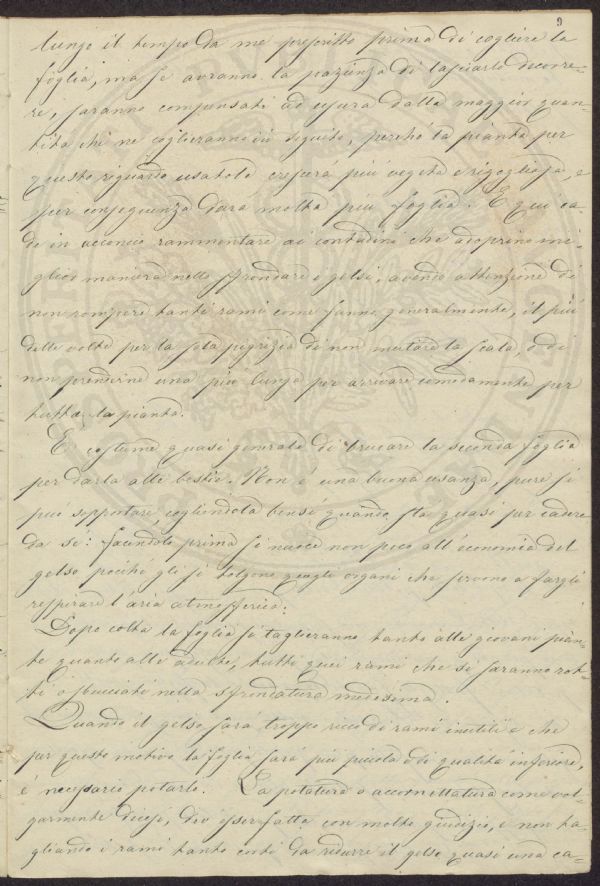 9
lungo il tempo da me prescritto prima di cogliere la
foglia, ma se avranno la pazienza di lasciarlo decorre-
re, saranno compensati ad usura dalla maggior quan-
tità che ne coglieranno in seguito, perché la pianta per
questo riguardo usatole crescerà più vegeta e rigogliosa, e
per conseguenza darà molta più foglia. E qui ca-
de in acconcio rammentare ai contadini che adoprino mi-
glior maniera nello sfrondare i gelsi, avendo attenzione di
non rompere tanti rami come fanno generalmente, il più
delle volte per la sola pigrizia di non mutare la scala, o di
non prenderne una più lunga per arrivare comodamente per
tutta la pianta.
E costume quasi generale di brucare la seconda foglia
per darla alle bestie. Non è una buona usanza, pure si
può sopportare, cogliendola bensì quando sta quasi per cadere
da se: facendolo prima si nuoce non poco all'economia del
gelso poiché gli si tolgono quegli organi che servono a fargli
respirare l'aria atmosferica.
Dopo colta la foglia si taglieranno tanto alle giovani pian-
te quanto alle adulte, tutti quei rami che si saranno rot-
ti o sbucciati nella sfrondatura medesima.
Quando il gelso sarà troppo ricco di rami inutili e che
per questo motivo la foglia sarà più piccola e di qualità inferiore,
è necessario potarlo. La potatura o accomettatura come vol-
garmente dicesi, dev'esser fatta con molto giudizio, e non ta-
gliando i rami tanto corti da ridurre il gelso quasi una ca-